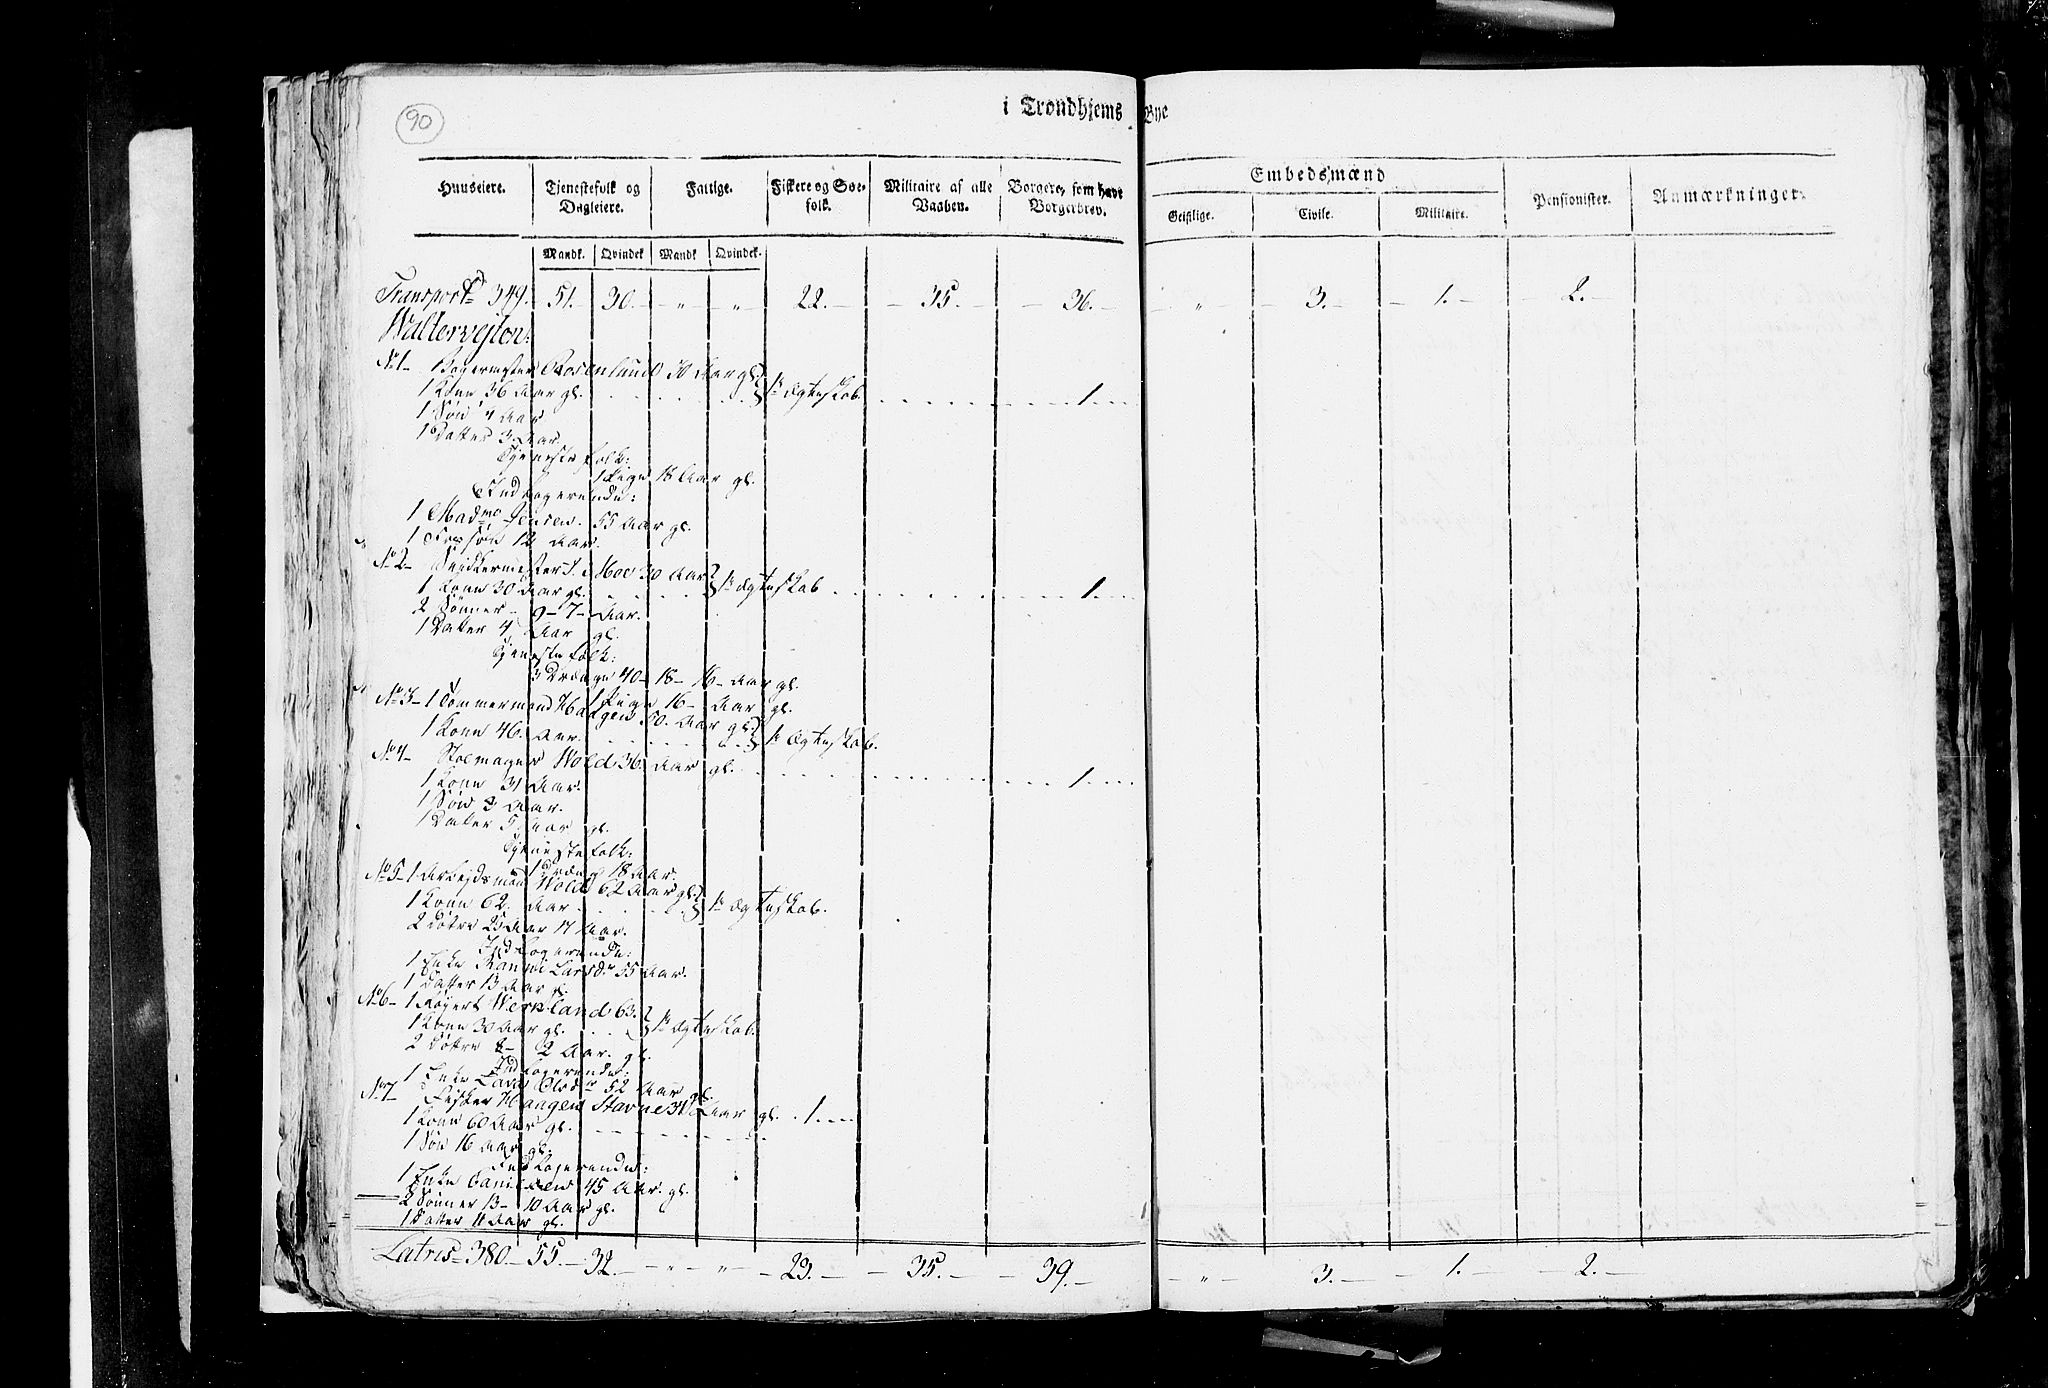 90
i Trondhjems Bye
Huuseiere. Tjenestefolk og Dagleiere. Fattige. Fiskere og Søefolk. Militaire af alle Vaaben. Borgere, som have Borgerbrev. Embedsmænd Pensionister. Anmærkninger.
Geistlige. Civile. Militaire.
Mandk. Qvindek Mandk Qvindek.
Transport 349. 51. 30. „ „ 22. 35. 36. „ 3. 1. 2.
No 1 Bagermester Rosenlund 30 Aar gl.
1 Kone 36 Aar gl. 1te Ægteskab 1
1 Søn 4 Aar
1 Datter 3 Aar.
Tjenestefolk:
1 Pige 18 Aar gl.
Indlogerende:
1 Madme Jensen. 55 Aar gl.
12 Aar.
No 2 Snikkermester Moe 30 Aar
1 Kone 30 Aar gl. 1te Ægteskab 1
2 Sønner 9 - 7 - Aar.
1 Datter 4 Aar gl.
Tjenestefolk:
3 Drenge 40 - 18 - 16 - Aar gl.
1 Pige 16 - Aar gl.
No 3 - 1 Tømmermand Haagen 50. Aar gl.
1 Kone 46. Aar. 1te Ægteskab.
No 4 Stolmager Wold 36. Aar gl. 1
1 Kone 31 Aar.
1 Søn 3 Aar.
1 Datter 5 Aar gl.
Tjenestefolk:
1 Dreng 18 Aar.
No 5 - 1 Arbejdsmand Wold 62 Aar gl.
1 Kone 62. Aar 1te Ægteskab.
2 Døtre 23 Aar 17 Aar.
Indlogerende:
1 Enke Larsdr 55 Aar.
1 Datter 13 Aar gl.
No 6 - 1 Werkland 63.
1 Kone 30 Aar gl. 1te Ægteskab.
2 Døtre 8 - 2 Aar. gl.
Indlogerende:
1 Enke Olsdr 52 Aar gl.
No 7 Fisker Haagen Stavne Aar gl. 1
1 Kone 60 Aar gl.
1 Søn 16 Aar gl.
Indlogerende:
1 Enke Danielsen 45 Aar. gl.
2 Sønner 13 - 10 Aar gl.
1 Datter 11 Aar gl.
Latris 380 - 55. - 32. „ „ 23. 35. 39. „ 3. 1. 2.